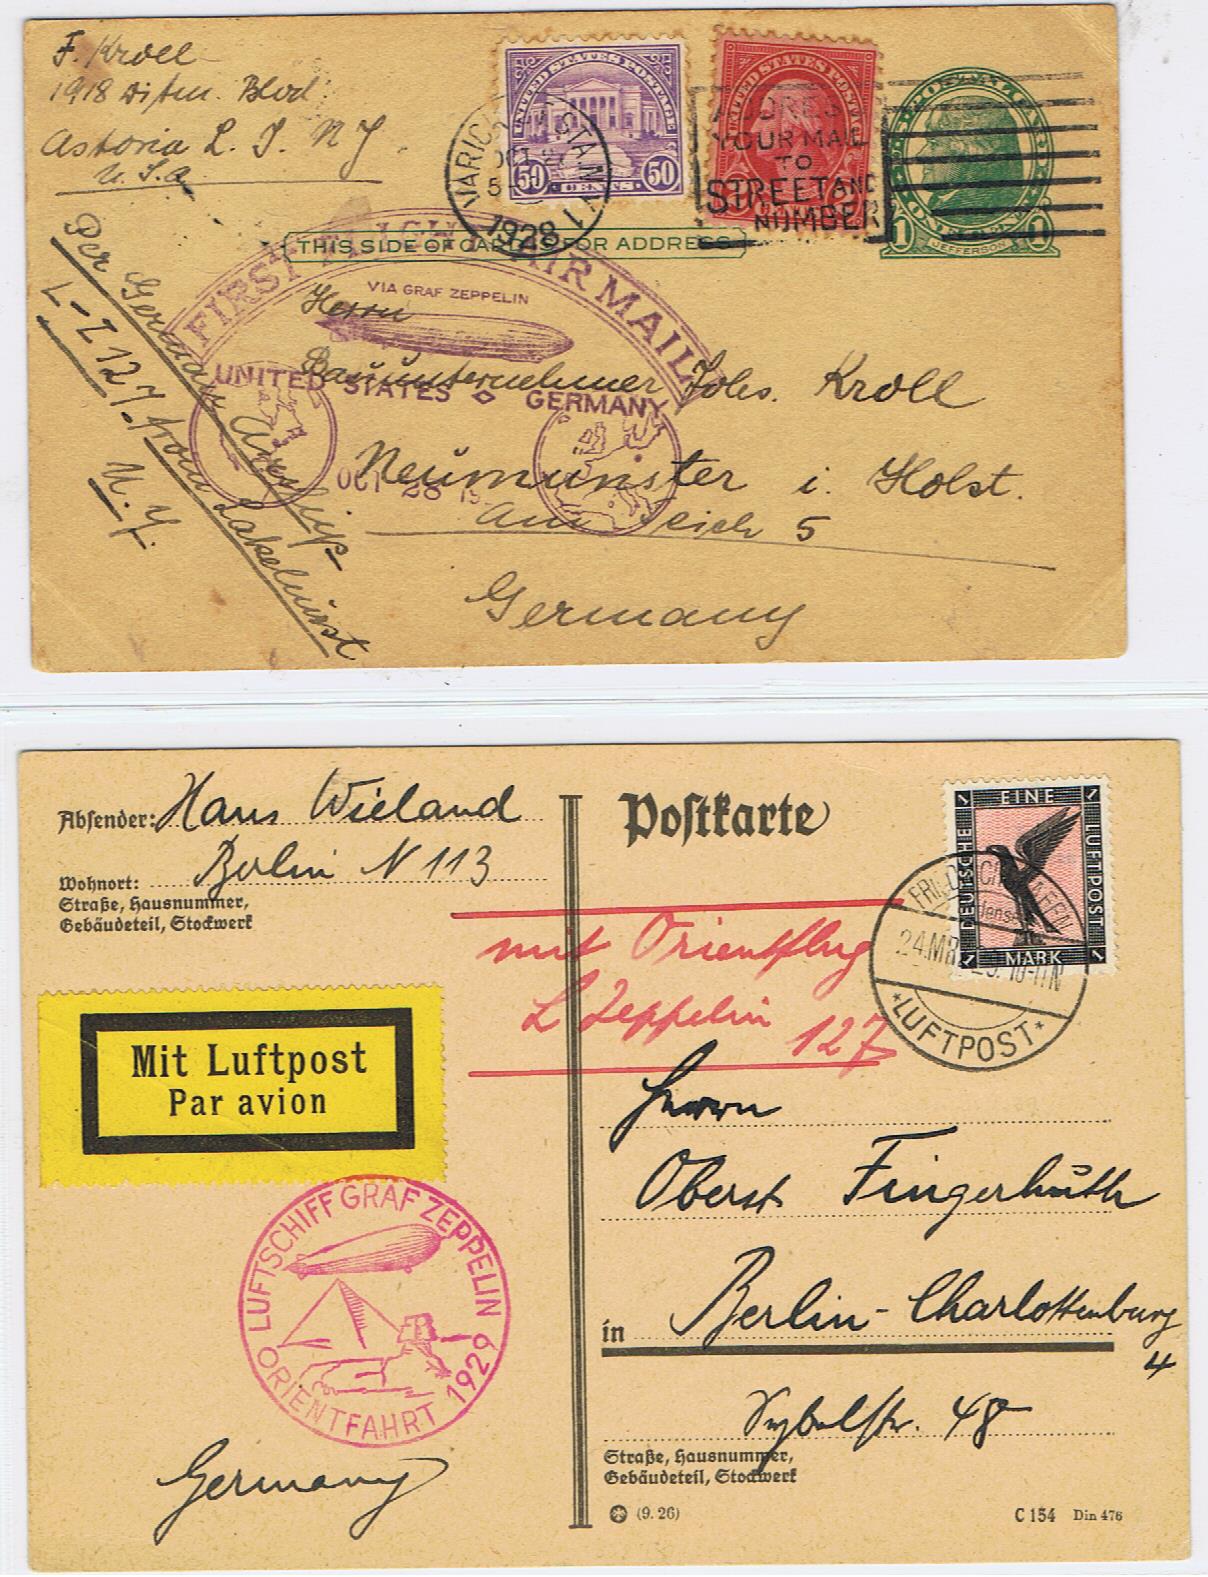 F. Kroll
1918 Ditm. Blvd.
Astoria L. I. N Y.
U. S. A
UNITED STATES POSTAGE
50 CENTS 50
VARICK STA. N.Y.
OCT
1928
UNITED STATES POSTAGE
ADDRESS
YOUR MAIL
TO
STREET AND
NUMBER
1 JEFFERSON 1
THIS SIDE OF CARD IS FOR ADDRESS
FIRST FLIGHT AIR MAIL
VIA GRAF ZEPPELIN
UNITED STATES ◇ GERMANY
OCT 28 19
Per German Airship
L-Z 127. from Lakehurst
N. Y.
Herrn
Bauunternehmer Johs. Kroll
Neumünster i. Holst.
Am Teich 5
Germany
Absender: Hans Wieland
Berlin N 113
Wohnort:
Straße, Hausnummer,
Gebäudeteil, Stockwerk
Postkarte
1 EINE 1
DEUTSCHE
LUFTPOST
1 MARK 1
FRIEDRICHSHAFEN
24.MRZ.29. 10-11N
*LUFTPOST*
mit Orientflug
L Zeppelin 127
Mit Luftpost
Par avion
LUFTSCHIFF GRAF ZEPPELIN
ORIENTFAHRT 1929
Germany
Herrn
Oberst Fingerhuth
in Berlin-Charlottenburg
4
Sybelstr. 48
Straße, Hausnummer,
Gebäudeteil, Stockwerk
(9. 26)
C 154 Din 476